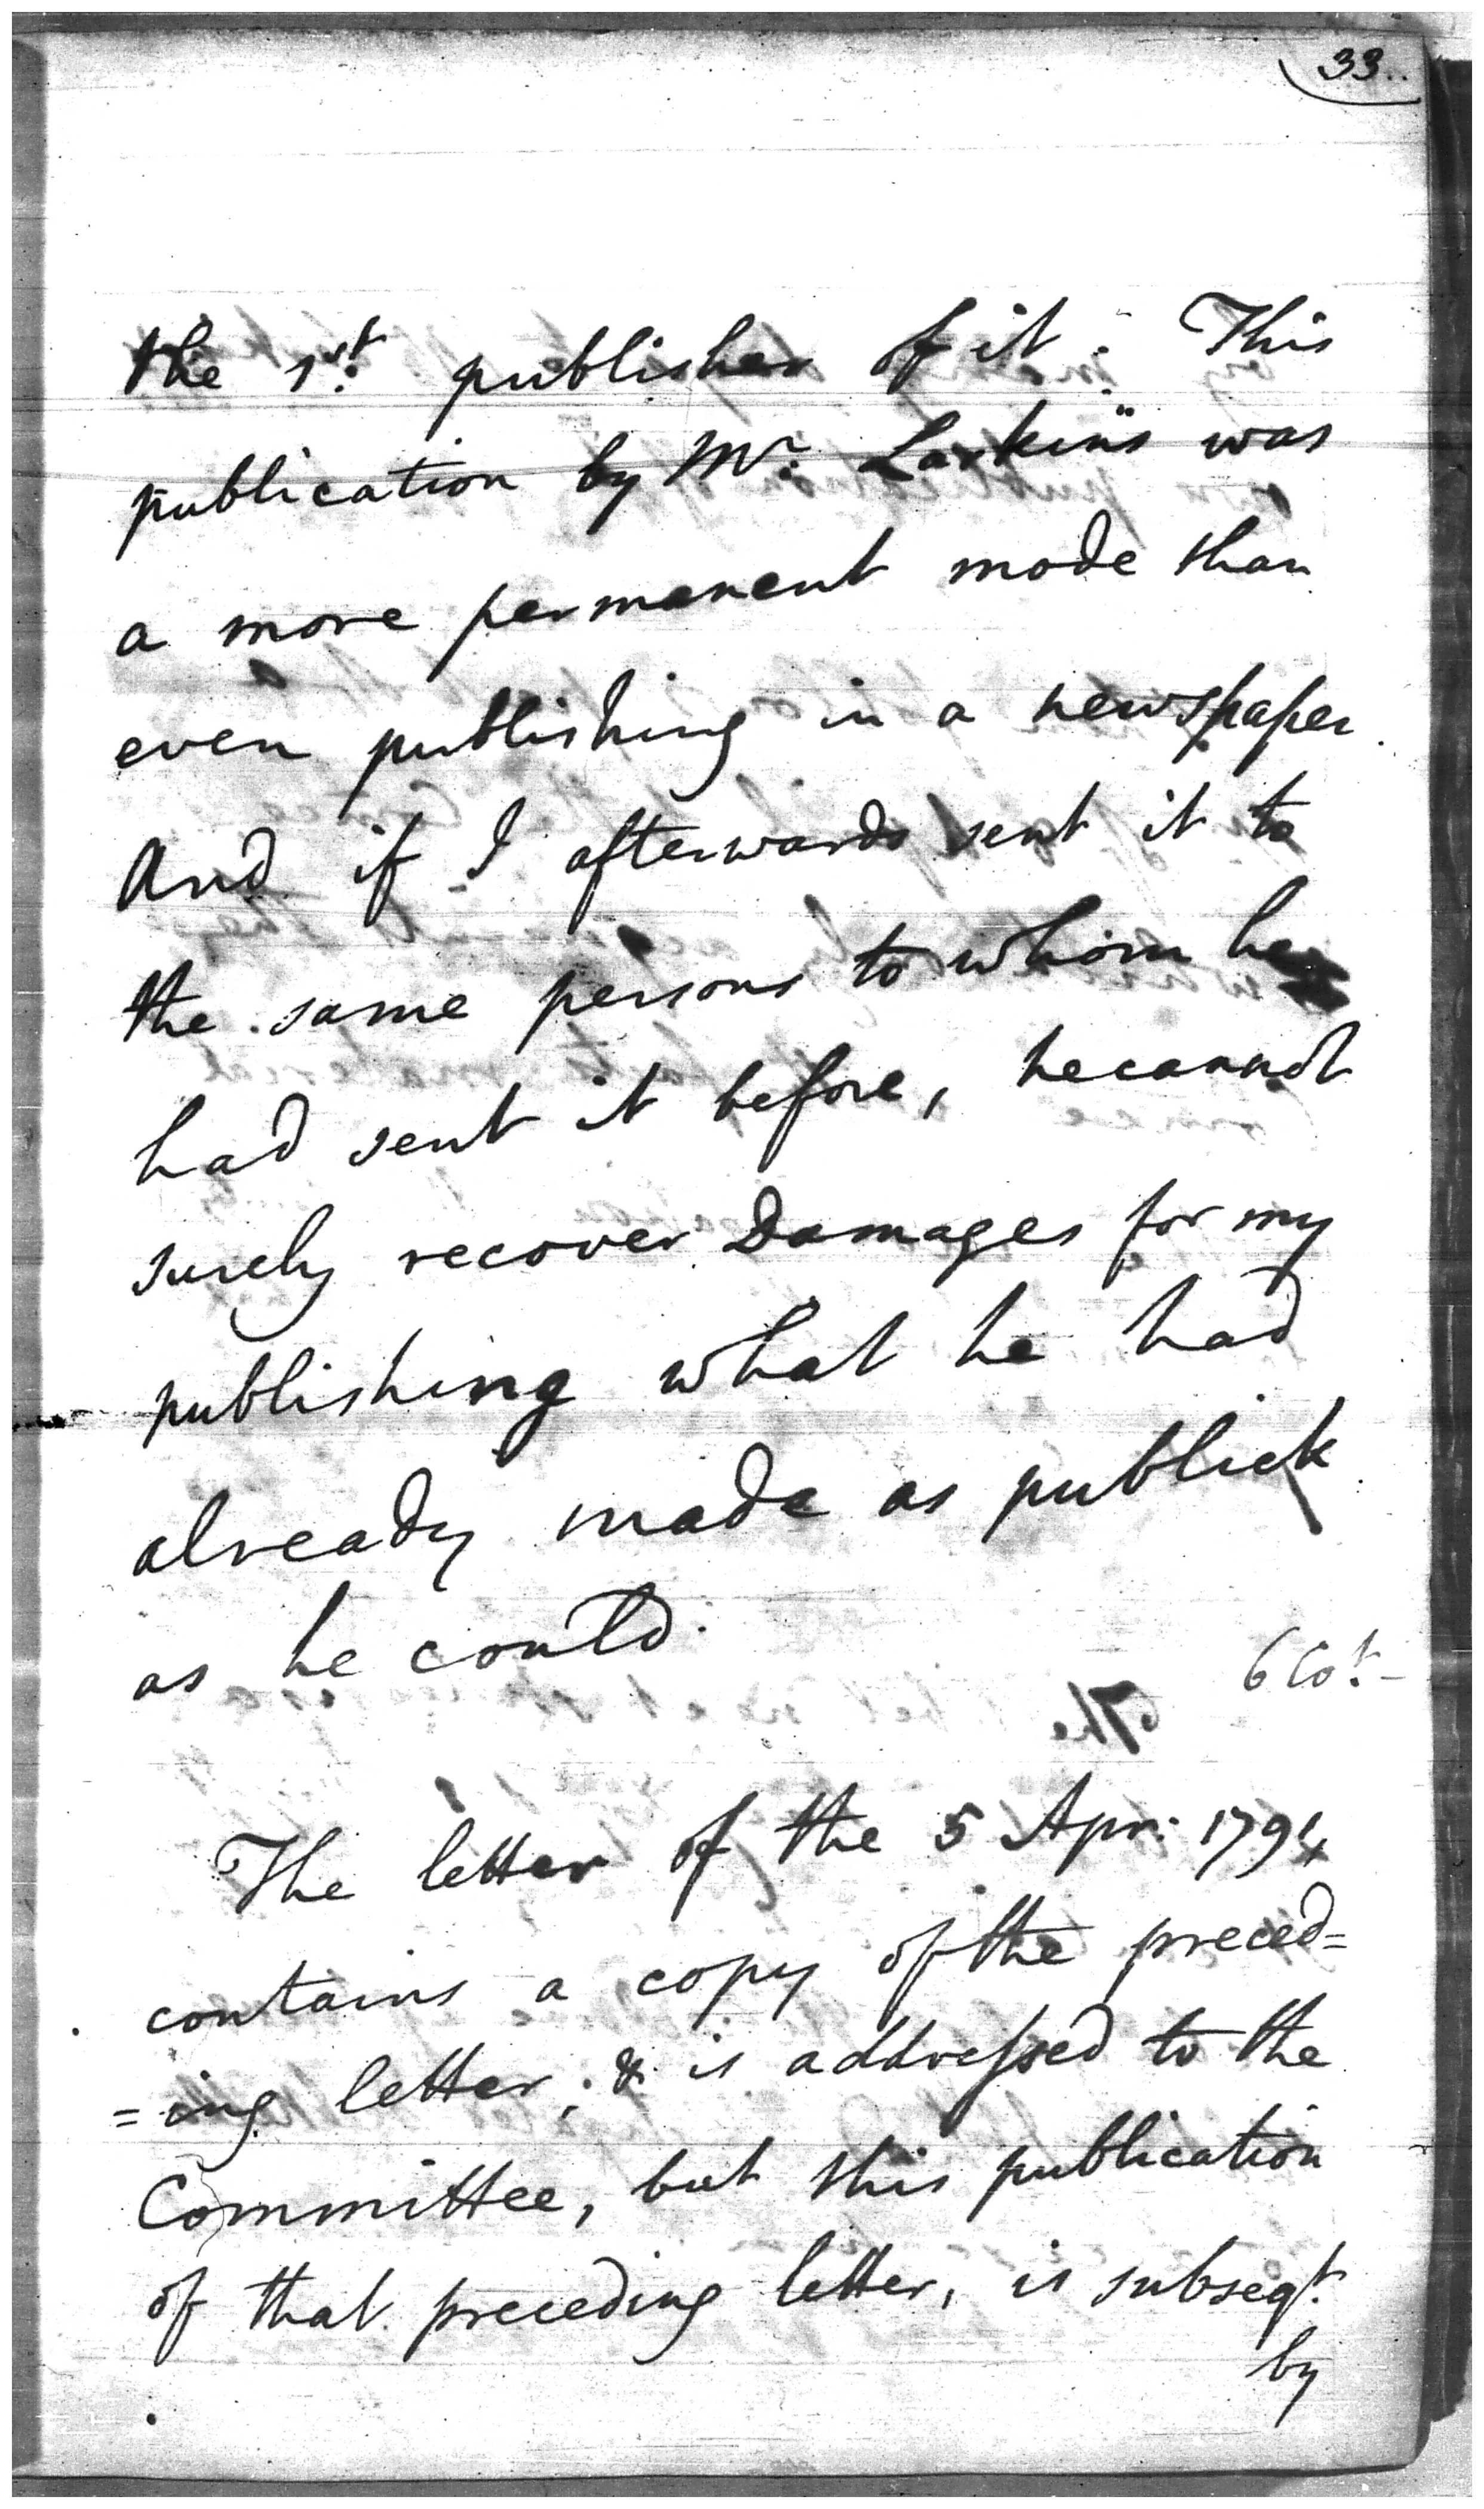 33..
the 1st. publisher of it. This
publication by Mr. Larkins was
a more permanent mode than
even publishing in a newspaper.
And if I afterwards sent it to
the same persons to whom he
had sent it before, he cannot
surely recover Damages for my
publishing what he had
already made as publick
as he could.
The letter of the 5 Apr: 1794
contains a copy of the preced=
=ing letter, & is addressed to the
Committee, but this publication
of that preceding letter, is subseqt.
by